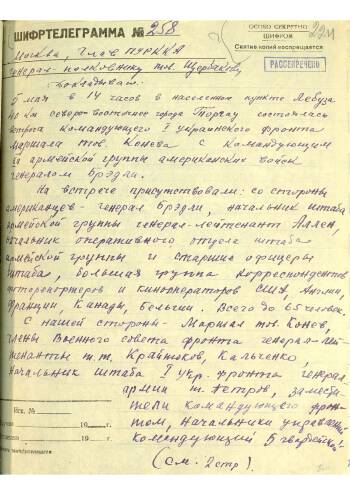 ШИФРТЕЛЕГРАММА № 258
ОСОБО СЕКРЕТНО
ШИФРОМ
Снятие копий воспрещается
РАССЕКРЕЧЕНО
Москва, Глав ПУРККА
Генерал-полковнику тов. Щербакову
Докладываю:
5 мая в 14 часов в населенном пункте Лебуза
40 км северо-восточнее города Торгау состоялась
встреча командующего I украинского фронта
Маршала тов. Конева с командующим
армейской группы американских войск
генералом Брэдли.
На встрече присутствовали: со стороны
американцев - генерал Брэдли, начальник штаба
армейской группы генерал-лейтенант Аллен,
начальник оперативного отдела штаба
армейской группы и старшие офицеры
штаба, большая группа корреспондентов
фоторепортеров и кинооператоров США, Англии,
Франции, Канады, Бельгии. Всего до 65 человек.
С нашей стороны - Маршал тов. Конев,
члены Военного совета фронта генерал-лей-
тенанты т.т. Крайнюков, Кальченко,
Начальник штаба I Укр. фронта генерал
армии т. Петров, замести-
тели командующего фрон-
том, начальники управлений
командующий 5 гвардейской
(см. 2 стр.)
Исх. №
19 г.
19 г.